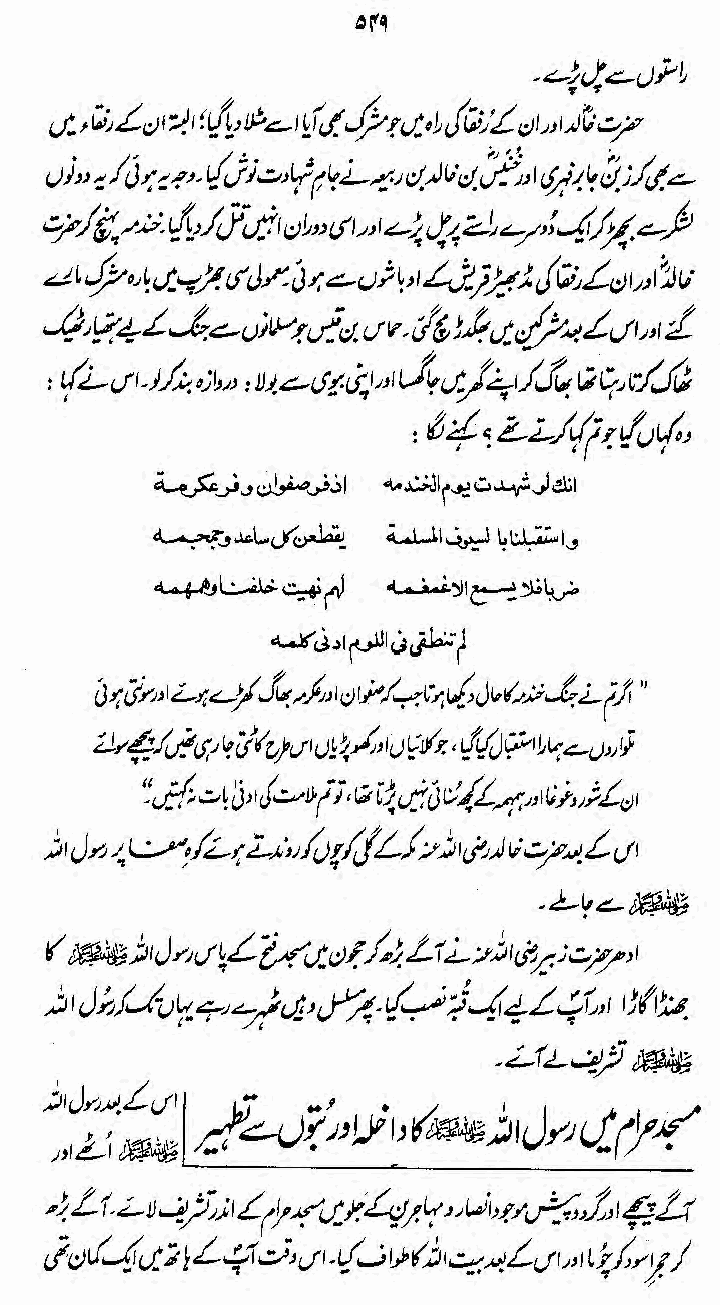 ۵۴۹
راستوں سے چل پڑے ۔
حضرت خالدؓ اور ان کے رُفقا کی راہ میں جو مشرک بھی آیا اسے سُلا دیا گیا؛ البتہ ان کے رفقاء میں
سے بھی کرز بنؓ جابر فہری اور خُنَیسؓ بن خالد بن ربیعہ نے جامِ شہادت نوش کیا۔ وجہ یہ ہوئی کہ یہ دونوں
لشکر سے بچھڑ کر ایک دُوسرے راستے پر چل پڑے اور اسی دوران انہیں قتل کر دیا گیا۔ خندمہ پہنچ کر حضرت
خالدؓ اور ان کے رفقا کی مڈبھیڑ قریش کے اوباشوں سے ہوئی۔ معمولی سی جھڑپ میں بارہ مشرک مارے
گئے اور اس کے بعد مشرکین میں بھگدڑ مچ گئی۔ حماس بن قیس جو مسلمانوں سے جنگ کے لیے ہتھیار ٹھیک
ٹھاک کرتا رہتا تھا بھاگ کر اپنے گھر میں جا گھسا اور اپنی بیوی سے بولا : دروازہ بند کر لو۔ اس نے کہا :
وہ کہاں گیا جو تم کہا کرتے تھے ؟ کہنے لگا :
انك لو شهدت يوم الخندمه اذ فر صفوان و فر عكرمة
و استقبلنا با لسيوف المسلمة يقطعن كل ساعد وجمجمه
ضربا فلا يسمع الا غمغمه لهم نهيت خلفنا وهمهمه
لم تنطقي في اللوم ادنى كلمه
" اگر تم نے جنگ خندمہ کا حال دیکھا ہوتا جب کہ صفوان اور عکرمہ بھاگ کھڑے ہوئے اور سونتی ہوئی
تلواروں سے ہمارا استقبال کیا گیا ، جو کلائیاں اور کھوپڑیاں اس طرح کاٹتی جا رہی تھیں کہ پیچھے سوائے
ان کے شور و غوغا اور ہمہمہ کے کچھ سُنائی نہیں پڑتا تھا، تو تم ملامت کی ادنیٰ بات نہ کہتیں۔"
اس کے بعد حضرت خالد رضی اللہ عنہ مکہ کے گلی کوچوں کو روندتے ہوئے کوہِ صفا پر رسول اللہ
ﷺ سے جا ملے ۔
ادھر حضرت زبیر رضی اللہ عنہ نے آگے بڑھ کر حجون میں مسجد فتح کے پاس رسول اللہ ﷺ کا
جھنڈا گاڑا اور آپؐ کے لیے ایک قُبّہ نصب کیا۔ پھر مسلسل وہیں ٹھہرے رہے یہاں تک کہ رسُول اللہ
ﷺ تشریف لے آئے ۔
مسجد حرام میں رسول اللہ ﷺ کا داخلہ اور بُتوں سے تطہیر
اس کے بعد رسول اللہ
ﷺ اُٹھے اور
آگے پیچھے اور گرد و پیش موجود انصار و مہاجرین کے جلو میں مسجد حرام کے اندر تشریف لائے۔ آگے بڑھ
کر حجرِ اسود کو چُوما اور اس کے بعد بیت اللہ کا طواف کیا۔ اس وقت آپؐ کے ہاتھ میں ایک کمان تھی